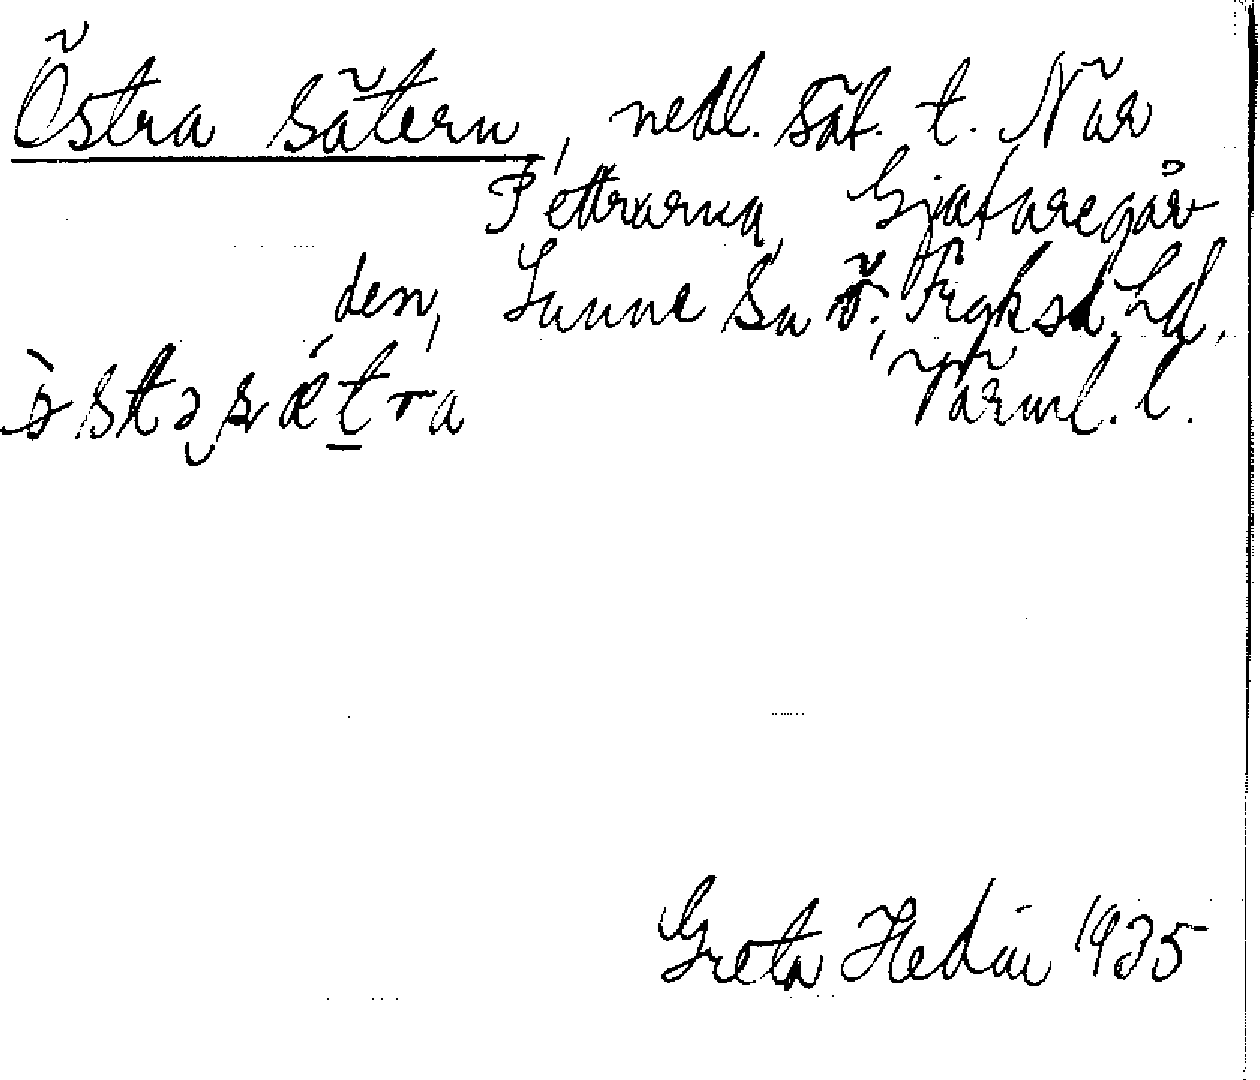 Östra sätern, nedl. sät. t. När
Pettrarna, Gjutaregår
den, Sunne sn Ö. Fryksd. hd,
Värml. l.
Greta Hedin 1935